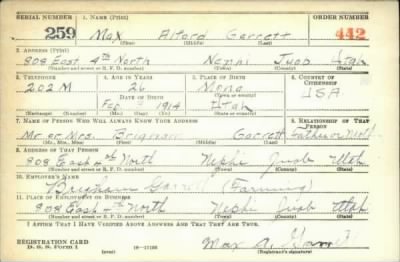 SERIAL NUMBER 1. NAME (Print) ORDER NUMBER
259 Max Alford Garrett 442
(First) (Middle) (Last)
2. ADDRESS (Print)
808 East 4th North Nephi Juab Utah
(Number and street or R. F. D. number) (Town) (County) (State)
3. TELEPHONE 4. AGE IN YEARS 5. PLACE OF BIRTH 6. COUNTRY OF CITIZENSHIP
202 M 26 Mona USA
DATE OF BIRTH (Town or county)
Feb 9 1914 Utah
(Exchange) (Number) (Mo.) (Day) (Yr.) (State or country)
7. NAME OF PERSON WHO WILL ALWAYS KNOW YOUR ADDRESS 8. RELATIONSHIP OF THAT PERSON
Mr. or Mrs. Brigham Garrett
(Mr., Mrs., Miss) (First) (Middle) (Last)
9. ADDRESS OF THAT PERSON
808 East 4th North Nephi Juab Utah
(Number and street or R. F. D. number) (Town) (County) (State)
10. EMPLOYER'S NAME
Brigham Garrett (Farming)
11. PLACE OF EMPLOYMENT OR BUSINESS
808 East 4th North Nephi Juab Utah
(Number and street or R. F. D. number) (Town) (County) (State)
I AFFIRM THAT I HAVE VERIFIED ABOVE ANSWERS AND THAT THEY ARE TRUE.
REGISTRATION CARD
D. S. S. Form 1 (over) Max A. Garrett
(Registrant's signature)